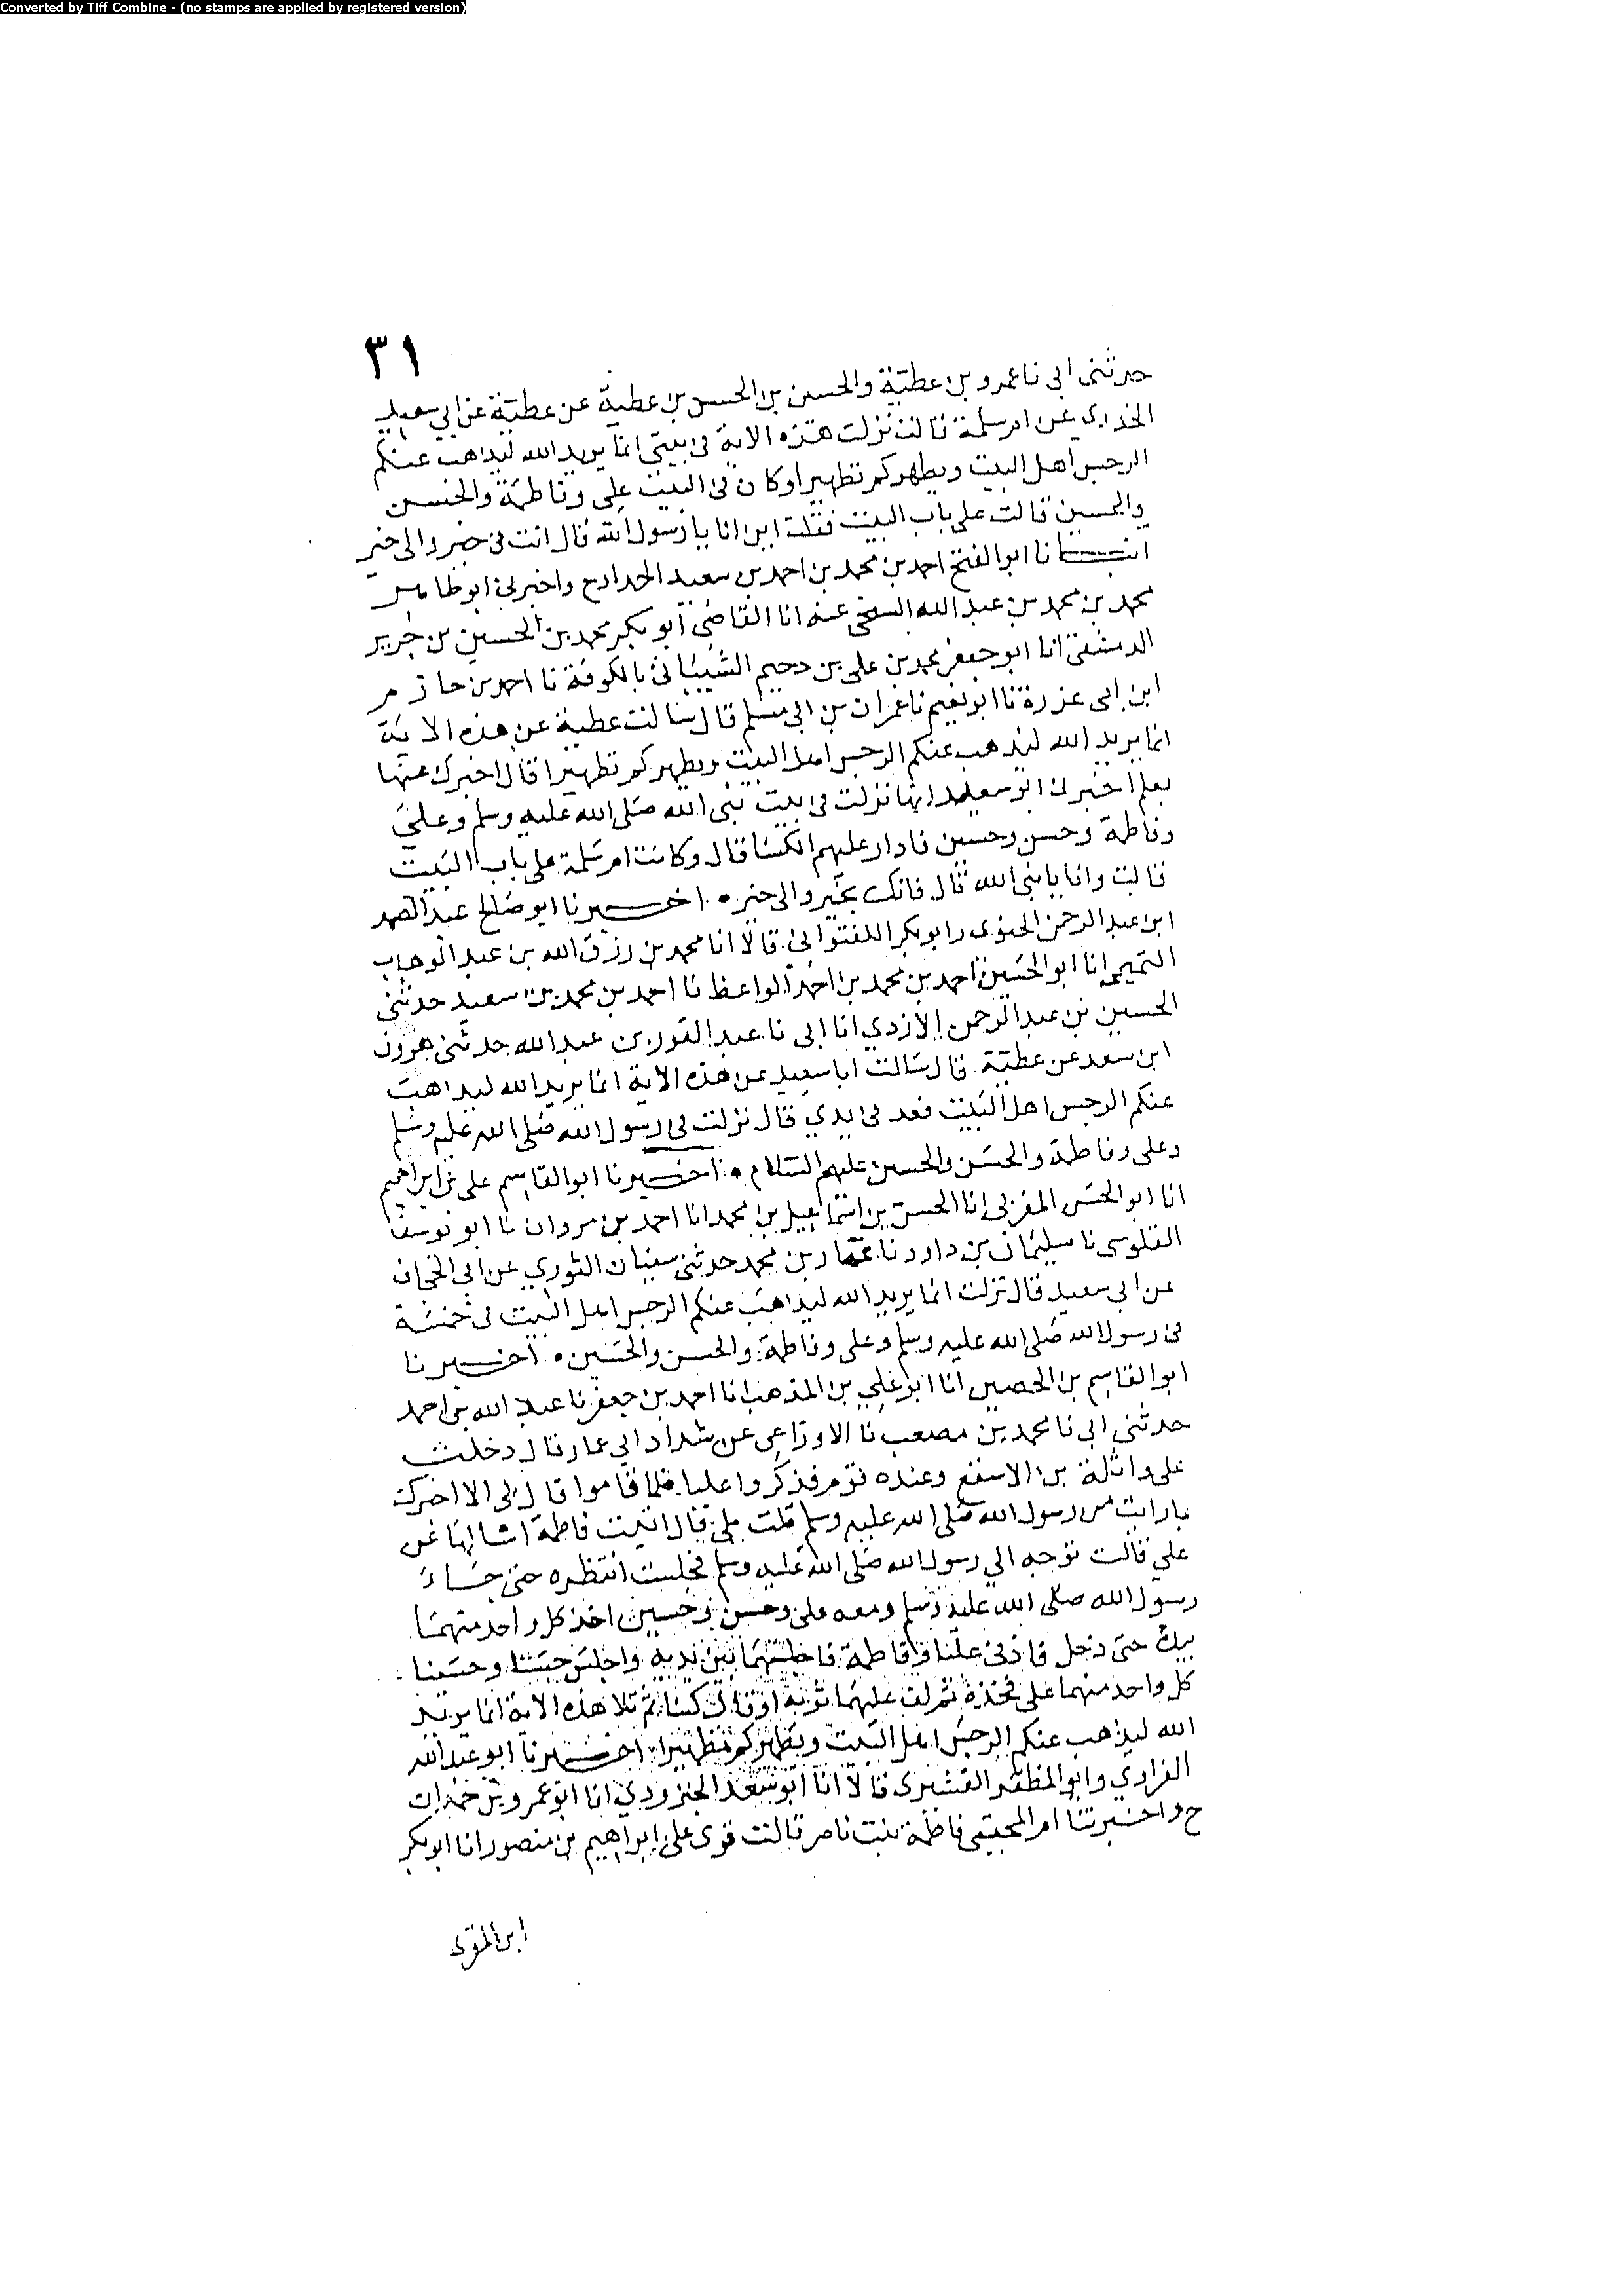 Converted by Tiff Combine - (no stamps are applied by registered version)
٣١
حدثنى ابى نا عمرو بن عطية والحسين بن الحسن بن عطية عن عطية عن ابي سعيد
الخدري عن ام سلمة قالت نزلت هذه الاية فى بيتي انما يريد الله ليذهب عنكم
الرجس اهل البيت ويطهركم تطهيرا وكان فى البيت على وفاطمة والحسن
والحسين قالت على باب البيت فقلت اين انا يا رسول الله قال انت فى خير والى خير
انبانا ابو الفتح احمد بن محمد بن احمد بن سعيد الحداد ح واخبرنى ابو طاهر
محمد بن محمد بن عبد الله السنجى عنه انا القاضى ابو بكر محمد بن الحسين بن جرير
الدشتى انا ابو جعفر محمد بن على بن دحيم الشيبانى بالكوفة نا احمد بن حازم
ابن ابى غرزة نا ابو نعيم نا عمران بن ابى مسلم قال سالت عطية عن هذه الاية
انما يريد الله ليذهب عنكم الرجس اهل البيت ويطهركم تطهيرا قال اخبرك عنها
بعلم اخبرنى ابو سعيد انها نزلت فى بيت نبى الله صلى الله عليه وسلم وعلى
وفاطمة وحسن وحسين فادار عليهم الكسا قال وكانت ام سلمة على باب البيت
قالت وانا يا نبى الله قال فانك بخير والى خير . اخبرنا ابو صالح عبد الصمد
ابن عبد الرحمن الحنوى وابو بكر اللفتوانى قالا انا محمد بن رزق الله بن عبد الوهاب
التميمى انا ابو الحسين احمد بن محمد بن احمد الواعظ نا احمد بن محمد بن سعيد حدثنى
الحسين بن عبد الرحمن الازدي انا ابى نا عبد النور بن عبد الله حدثنى هرون
ابن سعد عن عطية قال سالت ابا سعيد عن هذه الاية انما يريد الله ليذهب
عنكم الرجس اهل البيت فعد فى يدي قال نزلت فى رسول الله صلى الله عليه وسلم
وعلى وفاطمة والحسن والحسين عليهم السلام . اخبرنا ابو القاسم على بن ابراهيم
انا ابو الحسن المقرى انا الحسن بن اسماعيل بن محمد انا احمد بن مروان نا ابو يوسف
القلوسى نا سليمان بن داود نا عمار بن محمد حدثنى سفيان الثوري عن ابى الجحاف
عن ابى سعيد قال نزلت انما يريد الله ليذهب عنكم الرجس اهل البيت فى خمسة
فى رسول الله صلى الله عليه وسلم وعلى وفاطمة والحسن والحسين . اخبرنا
ابو القاسم بن الحصين انا ابو على بن المذهب انا احمد بن جعفر نا عبد الله بن احمد
حدثنى ابى نا محمد بن مصعب نا الاوزاعى عن شداد ابي عمار قال دخلت
على واثلة بن الاسقع وعنده قوم فذكروا عليا فلما قاموا قال لى الا اخبرك
بما رايت من رسول الله صلى الله عليه وسلم قلت بلى قال اتيت فاطمة اسالها عن
على قالت توجه الى رسول الله صلى الله عليه وسلم فجلست انتظره حتى جاء
رسول الله صلى الله عليه وسلم ومعه على وحسن وحسين اخذ كل واحد منهما
بيده حتى دخل فادنى عليا وفاطمة فاجلسهما بين يديه واجلس حسنا وحسينا
كل واحد منهما على فخذه ثم لف عليهما ثوبه او قال كسا ثم تلا هذه الاية انما يريد
الله ليذهب عنكم الرجس اهل البيت ويطهركم تطهيرا . اخبرنا ابو عبد الله
الفراوي وابو المظفر القشيرى قالا انا ابو سعد الجنزرودي انا ابو عمرو بن حمدان
ح واخبرتنا ام المجتبى فاطمة بنت ناصر قالت قرى على ابراهيم بن منصور انا ابو بكر
ابن المقرى